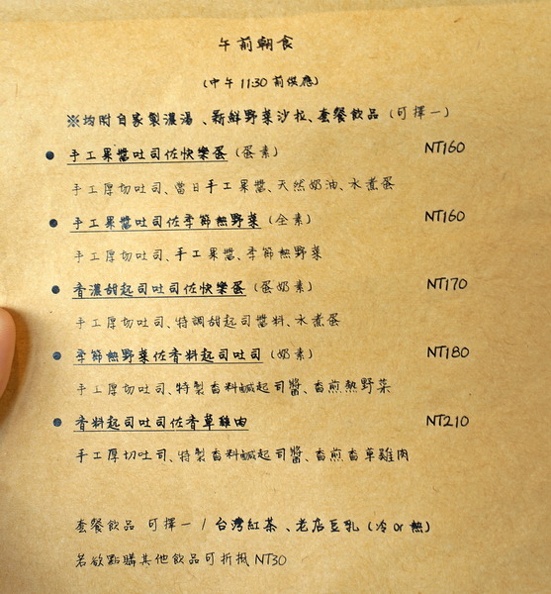 午前朝食
(中午11:30前供應)
※均附自家製濃湯、新鮮野菜沙拉、套餐飲品(可擇一)
● 手工果醬吐司佐快樂蛋(蛋素) NT160
手工厚切吐司、當日手工果醬、天然奶油、水煮蛋
● 手工果醬吐司佐季節熱野菜(全素) NT160
手工厚切吐司、手工果醬、季節熱野菜
● 香濃甜起司吐司佐快樂蛋(蛋奶素) NT170
手工厚切吐司、特調甜起司醬料、水煮蛋
● 季節熱野菜佐香料起司吐司(奶素) NT180
手工厚切吐司、特製香料鹹起司醬、香煎熱野菜
● 香料起司吐司佐香草雞肉 NT210
手工厚切吐司、特製香料鹹起司醬、香煎香草雞肉
套餐飲品 可擇一 / 台灣紅茶、老店豆乳(冷 or 熱)
若欲點購其他飲品可折抵NT30